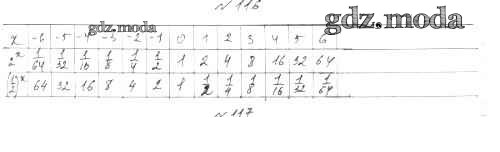 № 116
gdz.moda
gdz.moda
x -6 -5 -4 -3 -2 -1 0 1 2 3 4 5 6
2^x 1/64 1/32 1/16 1/8 1/4 1/2 1 2 4 8 16 32 64
(1/2)^x 64 32 16 8 4 2 1 1/2 1/4 1/8 1/16 1/32 1/64
№ 117